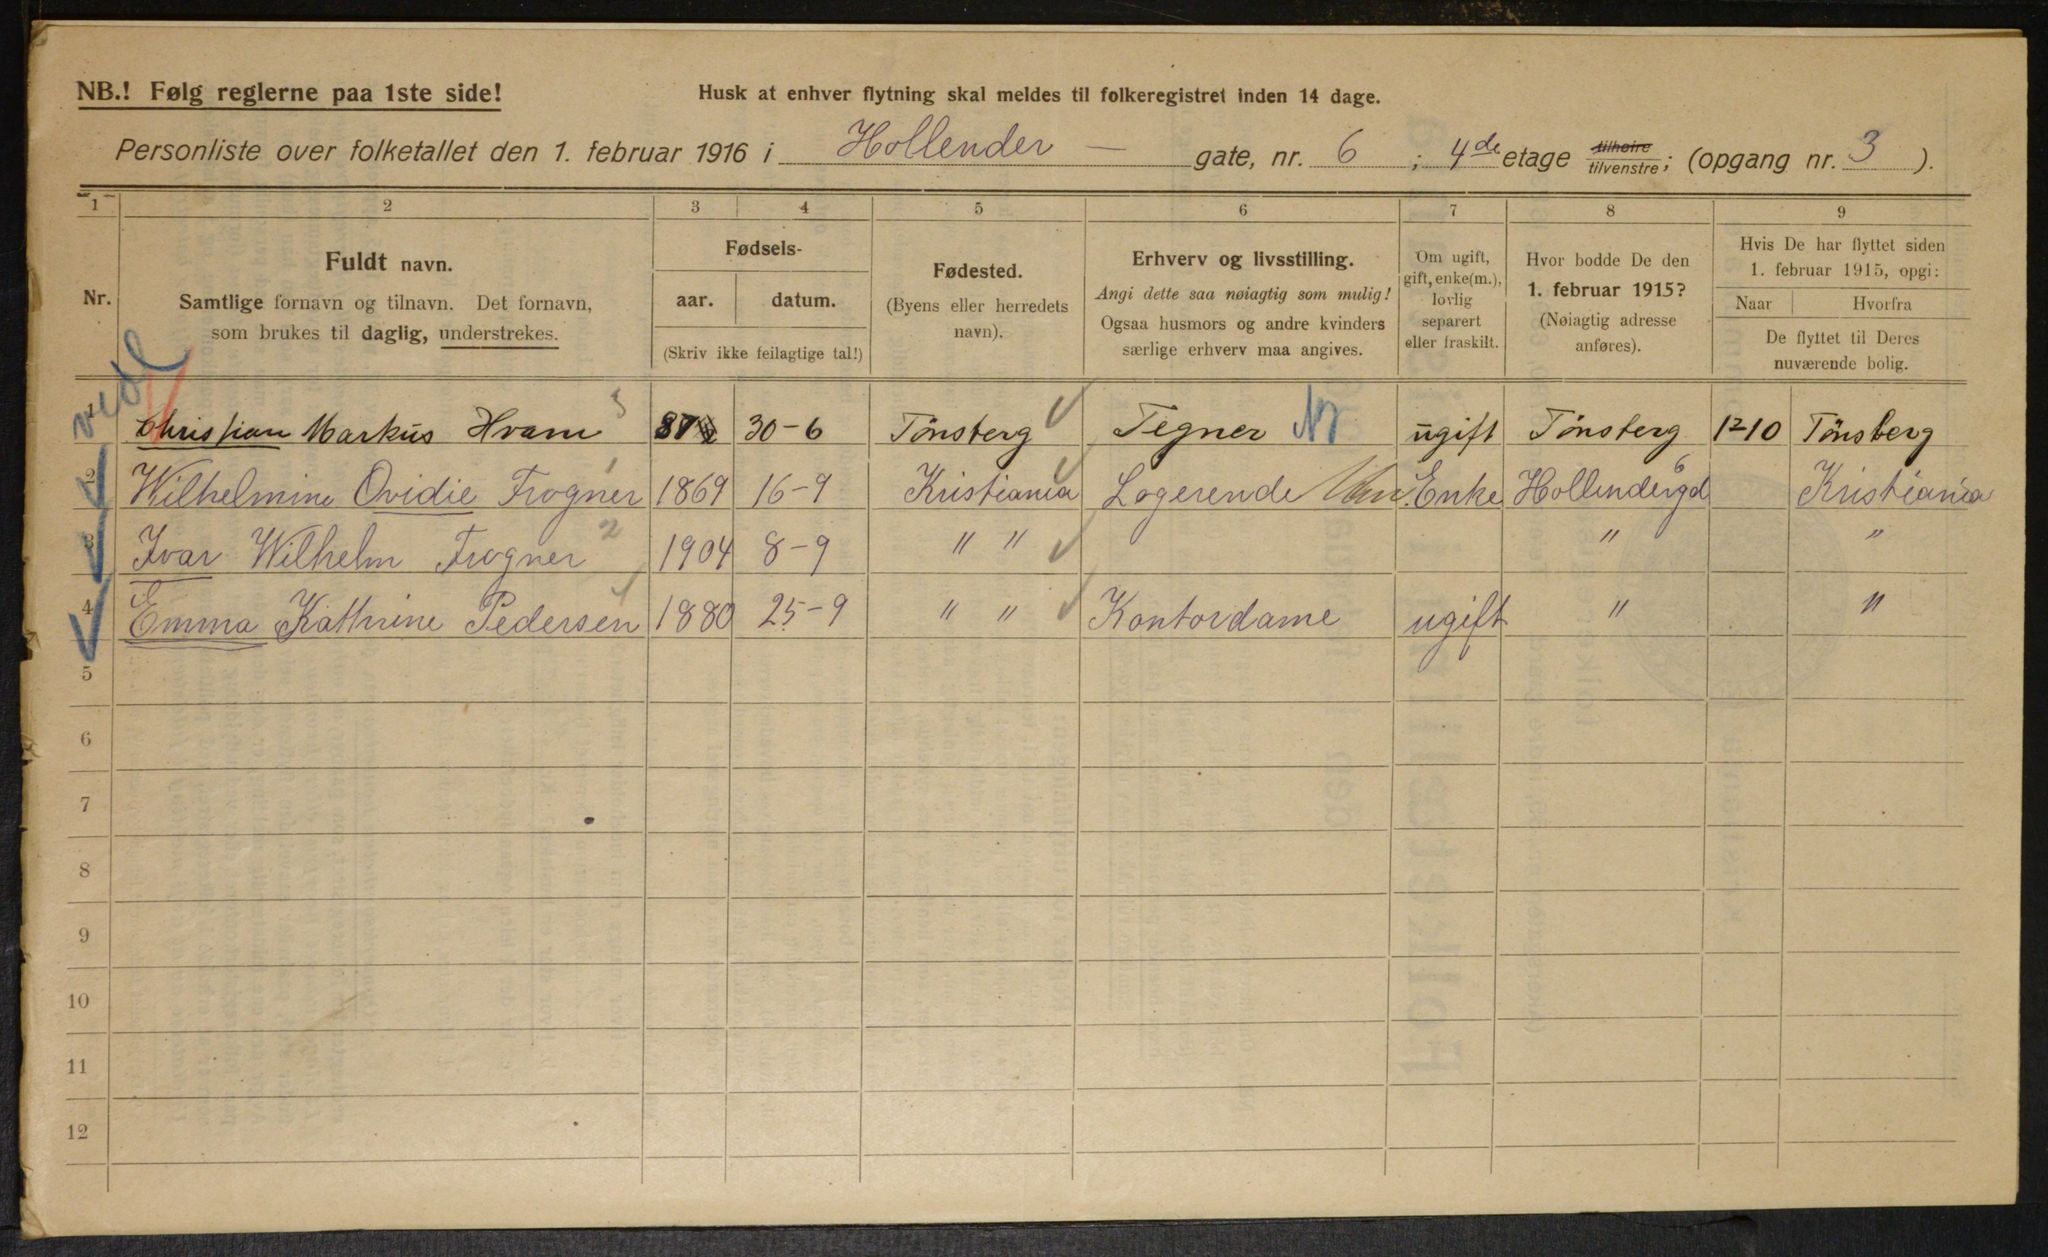 NB.! Følg reglerne paa 1ste side!
Husk at enhver flytning skal meldes til folkeregistret inden 14 dage.
Personliste over folketallet den 1. februar 1916 i Hollender — gate, nr. 6 ; 4de etage tilhøire/tilvenstre; (opgang nr. 3 ).
1 2 3 4 5 6 7 8 9
Nr.
Fuldt navn.
Samtlige fornavn og tilnavn. Det fornavn,
som brukes til daglig, understrekes.
Fødsels-
aar. datum.
(Skriv ikke feilagtige tal!)
Fødested.
(Byens eller herredets
navn).
Erhverv og livsstilling.
Angi dette saa nøiagtig som mulig!
Ogsaa husmors og andre kvinders
særlige erhverv maa angives.
Om ugift,
gift, enke(m.),
lovlig
separert
eller fraskilt.
Hvor bodde De den
1. februar 1915?
(Nøiagtig adresse
anføres).
Hvis De har flyttet siden
1. februar 1915, opgi:
Naar Hvorfra
De flyttet til Deres
nuværende bolig.
1 Christian Markus Hvam 3 87 30-6 Tönsberg Tegner ugift Tönsberg 12-10 Tönsberg
2 Wilhelmine Ovidie Frogner 1 1869 16-9 Kristiania Logerende Enke Hollendergd 6 Kristiania
3 Ivar Wilhelm Frogner 2 1904 8-9 " " " "
4 Emma Kathrine Pedersen 1880 25-9 " " Kontordame ugift " "
5
6
7
8
9
10
11
12